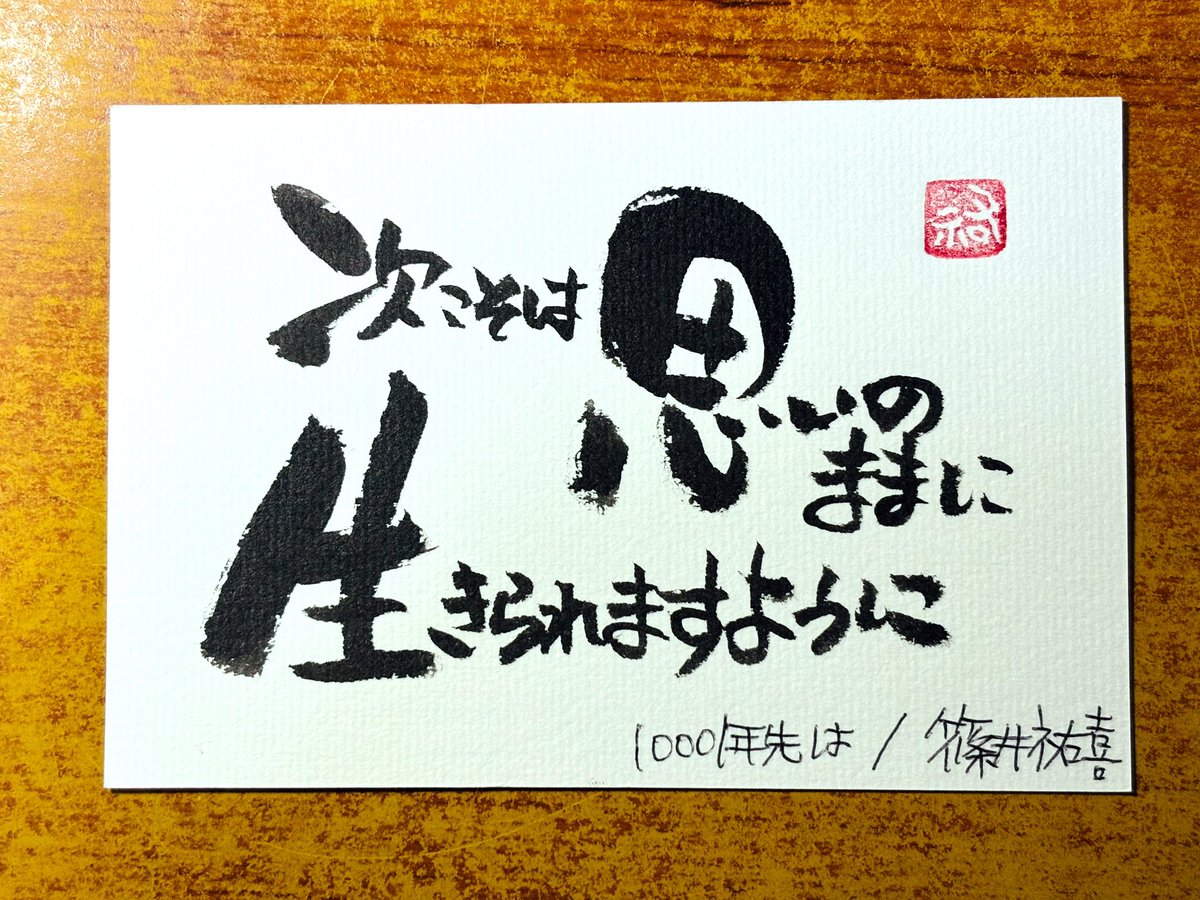 祐
次こそは
思いの
ままに
生きられますように
1000年先は / 篠井祐喜